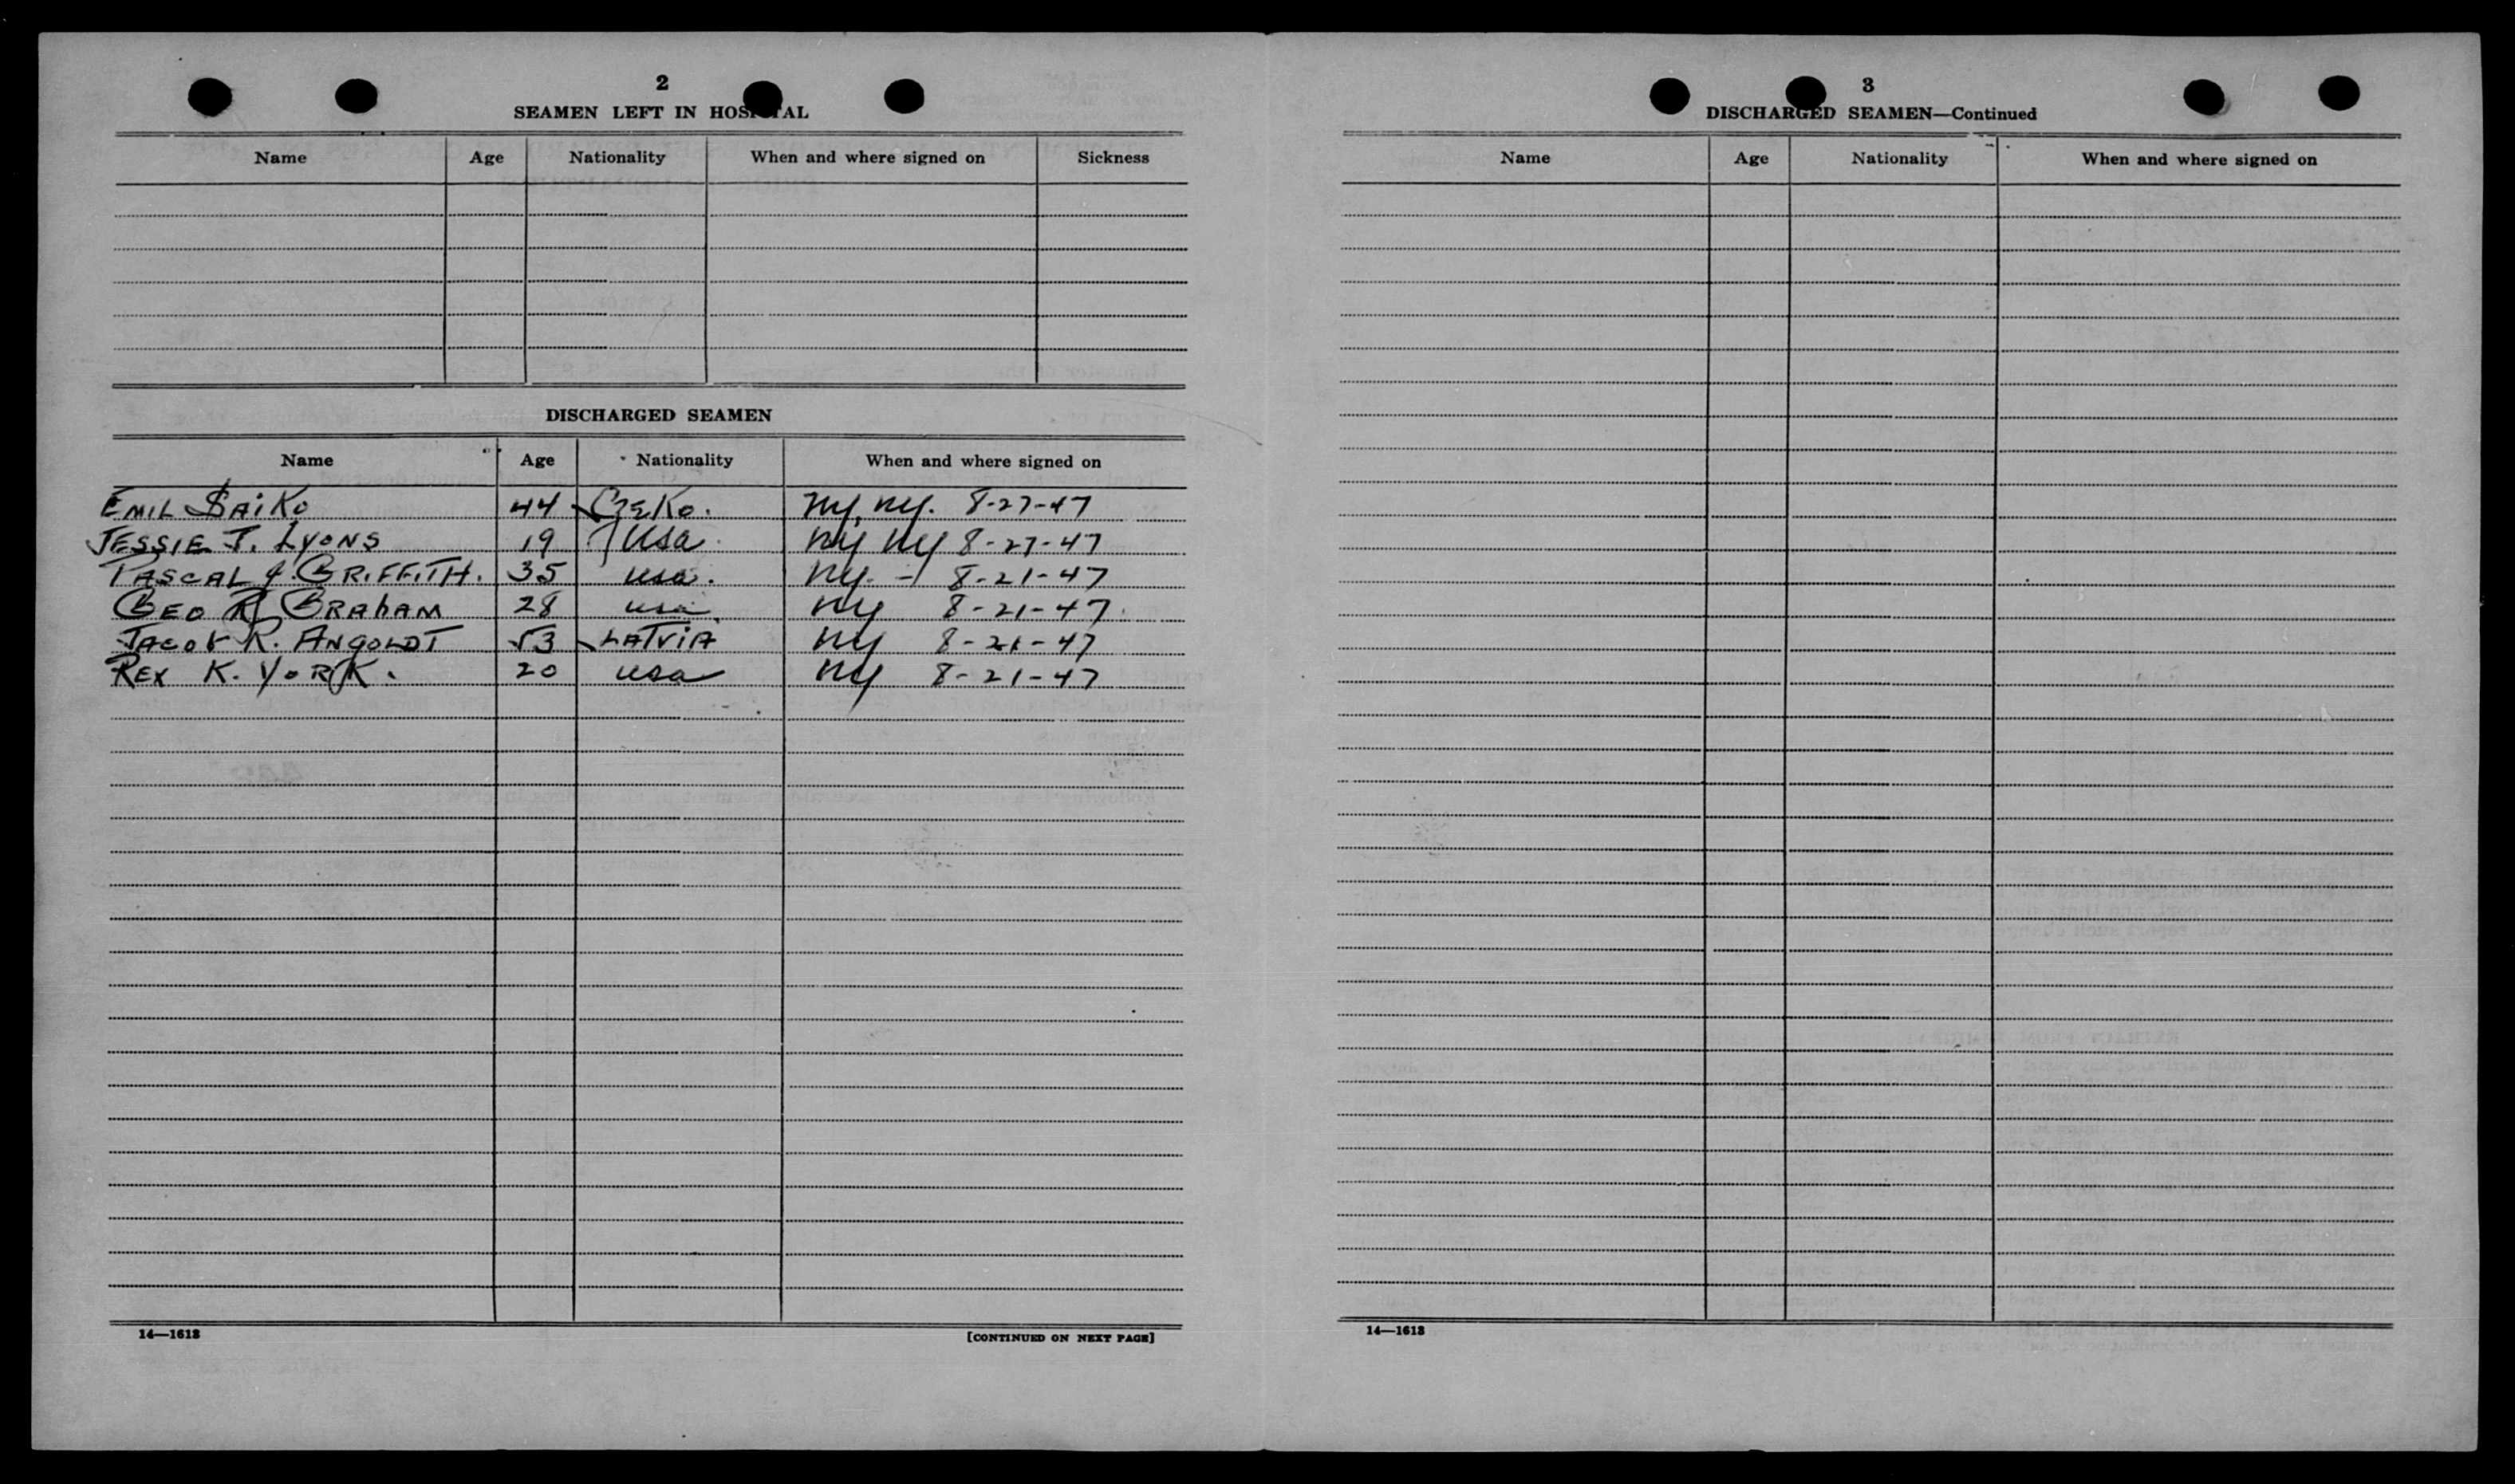 2
SEAMEN LEFT IN HOSPITAL
Name Age Nationality When and where signed on Sickness
DISCHARGED SEAMEN
Name Age Nationality When and where signed on
EMIL SAIKO 44 CZEKO. NY, NY. 8-27-47
JESSIE J. LYONS 19 USA NY NY 8-27-47
PASCAL J. GRIFFITH. 35 USA. NY - 8-21-47
GEO R GRAHAM 28 USA NY 8-21-47
JACOB R. ANGOLDT 53 LATVIA NY 8-21-47
REX K. YORK. 20 USA NY 8-21-47
14—1613
[CONTINUED ON NEXT PAGE]
3
DISCHARGED SEAMEN—Continued
Name Age Nationality When and where signed on
14—1613